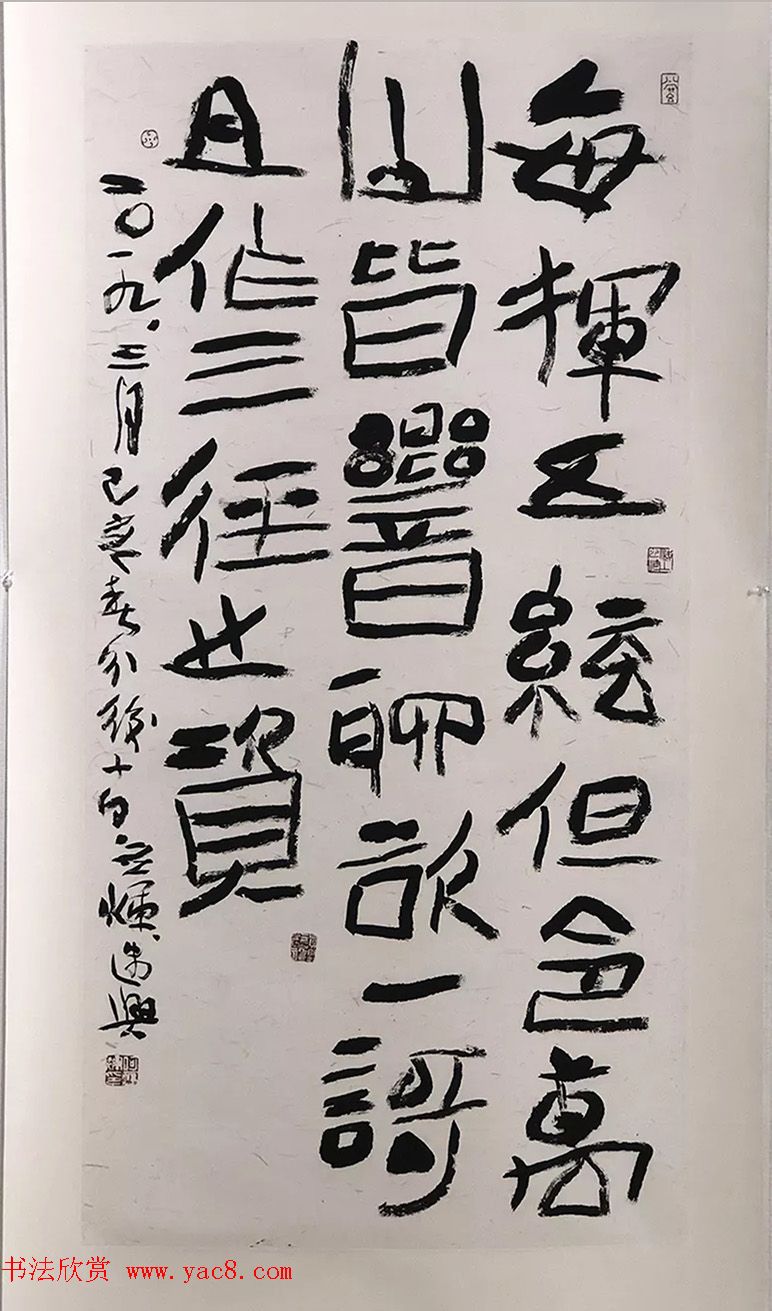 每揮五絃但令萬
山皆響聊欲一謌
且作三徑之資
二〇一九.三月己亥春分後十日
书法欣赏 www.yac8.com